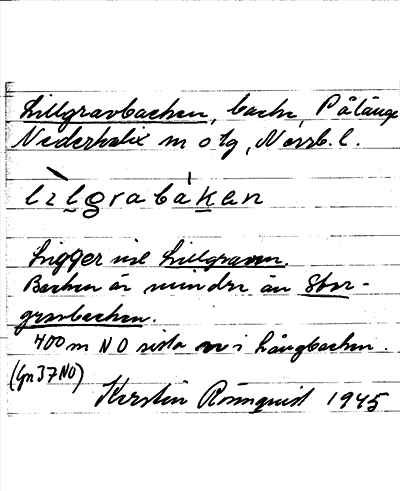 Lillgravbacken, backe, Pålänge
Nederkalix sn o tg, Norrb. l.
lılgrabákan
Ligger vid Lillgraven.
Backen är mindre än Stor-
gravbacken.
400 m NO sista n i Långbacken.
(Gn 37 NO)
Kerstin Rönnquist 1945